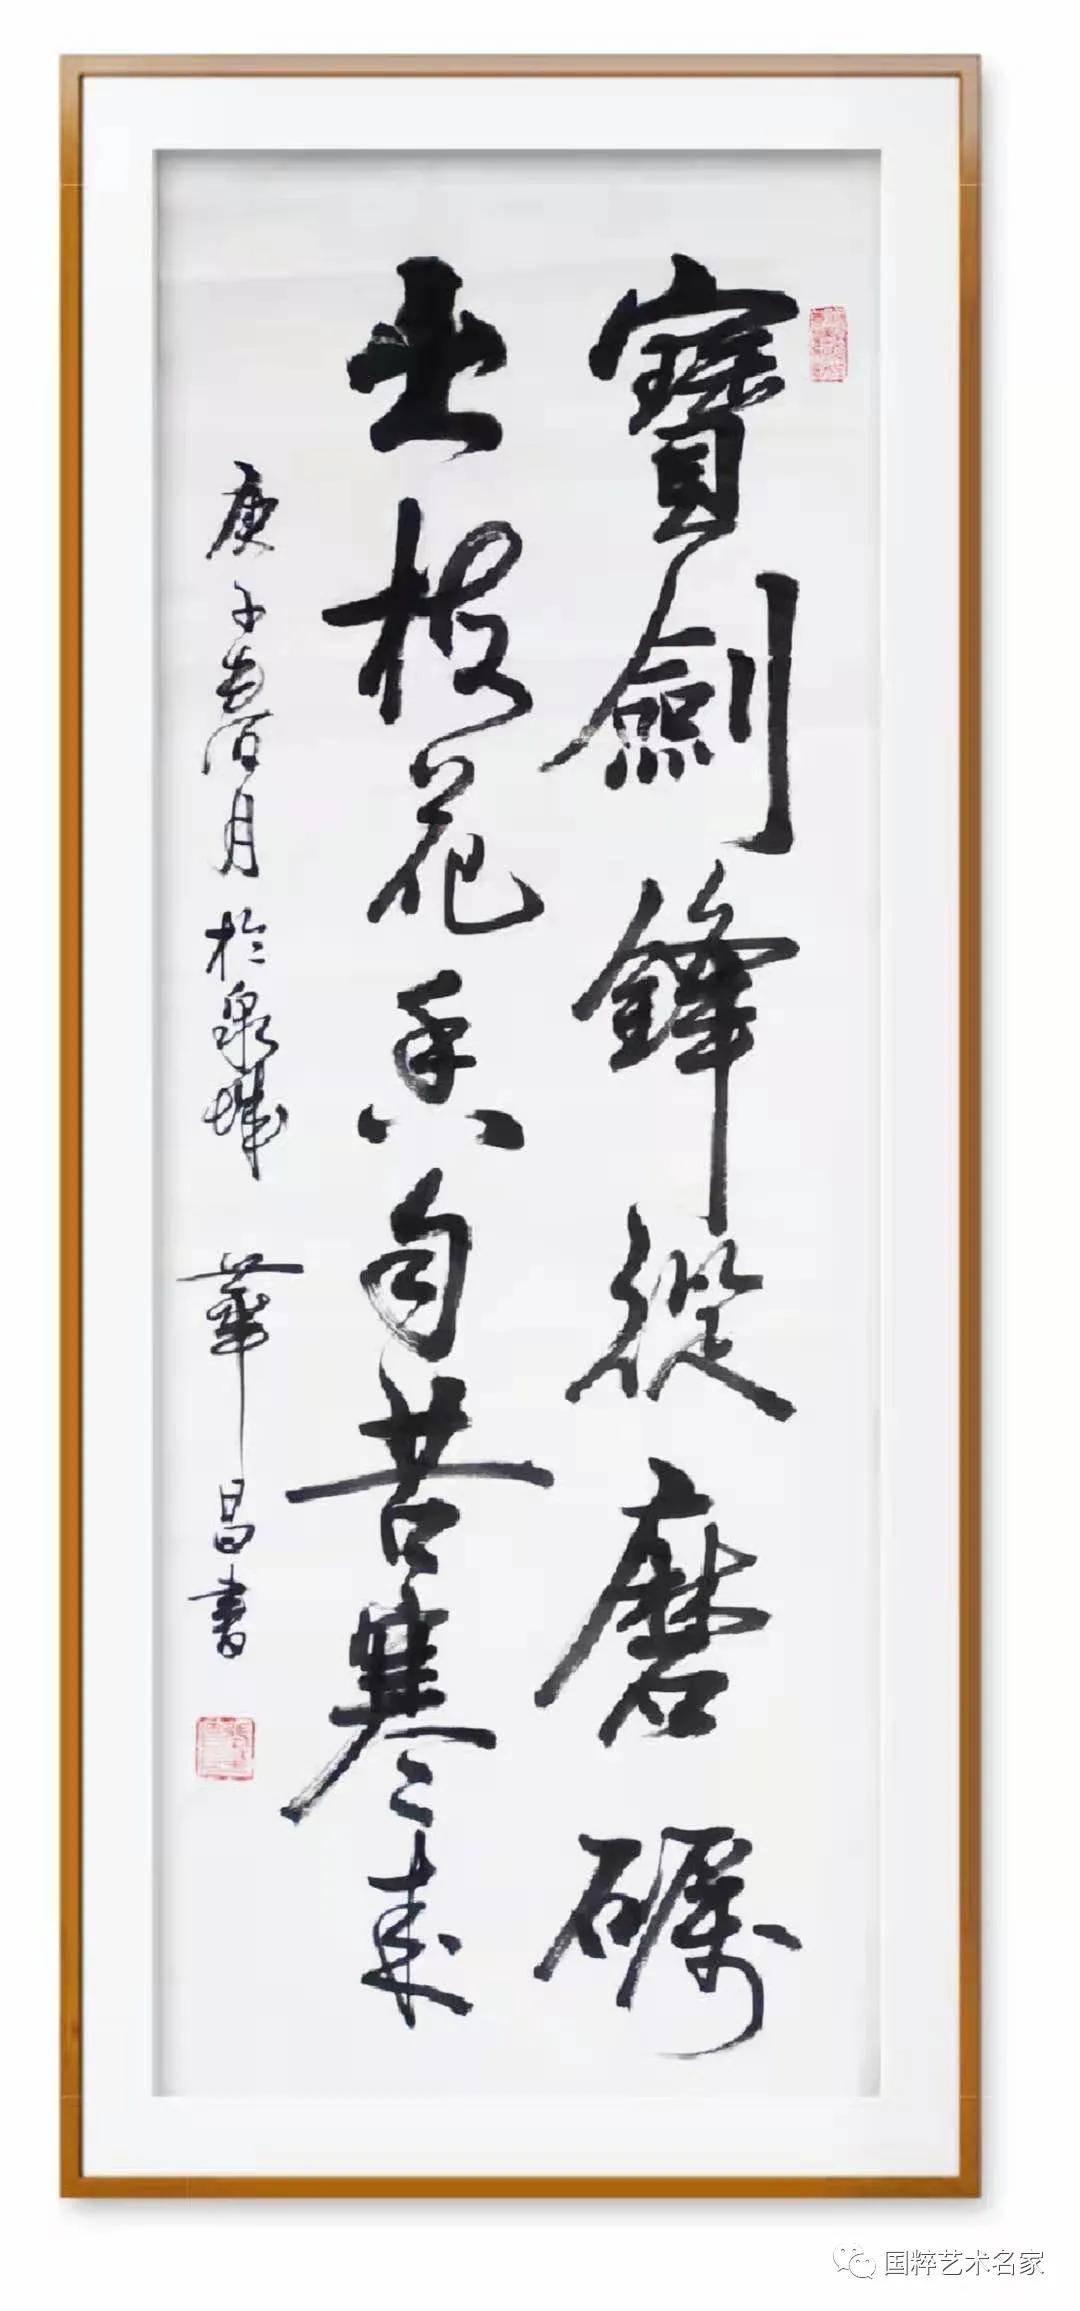 寶劍鋒從磨礪
出梅花香自苦寒來
庚子月於泉城 華昌書
国粹艺术名家